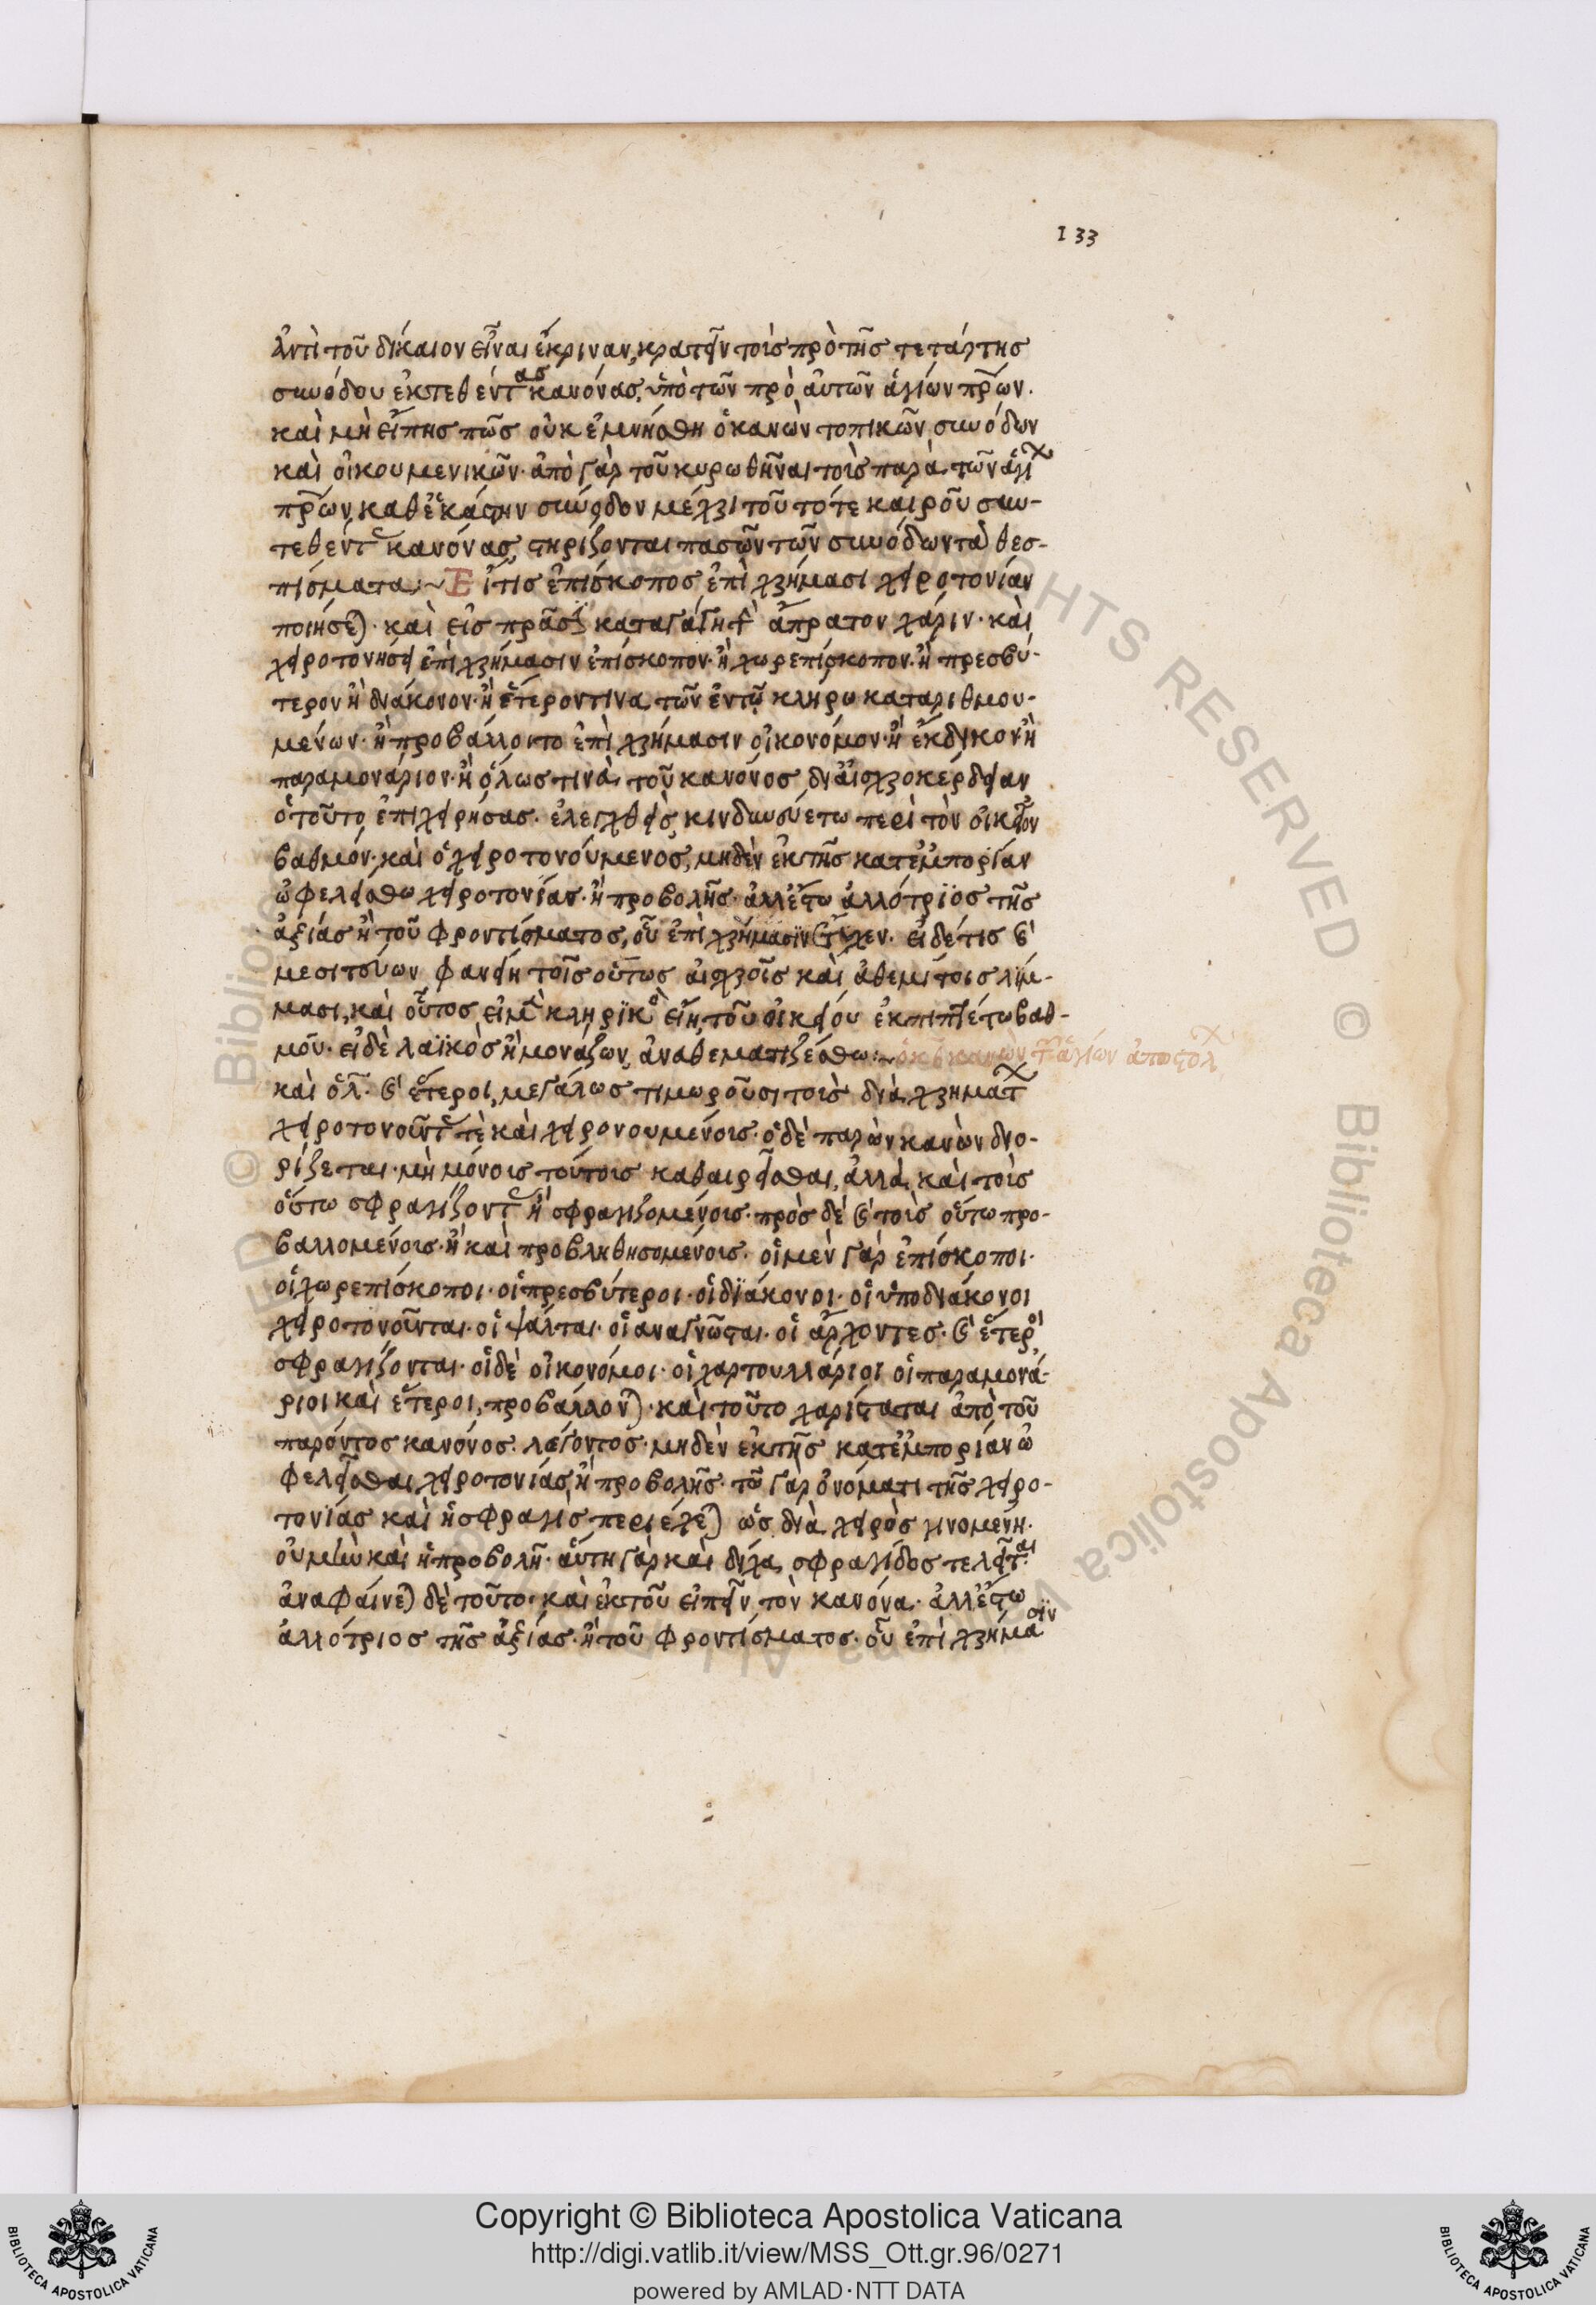 133
ἀντὶ τοῦ δίκαιον εἶναι ἔκριναν, κρατεῖν τοὺς πρὸ τῆς τετάρτης
συνόδου ἐκτεθέντας κανόνας, ὑπὸ τῶν πρὸ αὐτῶν ἁγίων πρῶν.
καὶ μὴ εἴπης πῶς οὐκ ἐμνήσθη ὁ κανὼν τοπικῶν συνόδων
καὶ οἰκουμενικῶν· ἀπὸ γὰρ τοῦ κυρωθῆναι τοὺς παρὰ τῶν ἁγί
πρῶν, καθ' ἑκάστην σύνοδον μέχρι τοῦ τότε καιροῦ συν-
τεθέντ κανόνας, στηρίζονται πασῶν τῶν συνόδων τὰ θεσ-
πίσματα:~ Εἴ τις ἐπίσκοπος ἐπὶ χρήμασι χειροτονίαν
ποιήσε)· καὶ εἰς πρᾶσ καταγάγη τ ἄπρατον χάριν· καὶ
χειροτονήσει ἐπὶ χρήμασιν ἐπίσκοπον· ἢ χωρεπίσκοπον· ἢ πρεσβύ-
τερον ἢ διάκονον· ἢ ἕτερον τινα τῶν ἐν τῷ κλήρω καταριθμου-
μένων· ἢ προβάλλοιτο ἐπὶ χρήμασιν οἰκονόμον· ἢ ἔκδικον ἢ
παραμονάριον· ἢ ὅλως τινὰ τοῦ κανόνος δι' αἰσχροκέρδειαν
ὁ τοῦτο ἐπιχειρήσας· ἐλεγχθεὶς, κινδυνευέτω περὶ τὸν οἰκεῖον
βαθμόν· καὶ ὁ χειροτονούμενος, μηδὲν ἐκ τῆς κατ' ἐμπορίαν
ὠφελείσθω χειροτονίας· ἢ προβολῆς· ἀλλ' ἔστω ἀλλότριος τῆς
ἀξίας ἢ τοῦ φροντίσματος, οὗ ἐπὶ χρήμασιν ἔτυχεν. εἰ δέ τις καὶ
μεσιτεύων φανείη τοῖς οὕτως αἰσχροῖς καὶ ἀθεμίτοις λήμ-
μασι, καὶ οὗτος εἰ μὲν κληρικὸ εἴη, τοῦ οἰκείου ἐκπιπτέτω βαθ-
μοῦ. εἰ δὲ λαϊκὸς ἢ μονάζων, ἀναθεματιζέσθω:~ ὁ κθ κανὼν τ ἁγίων ἀποστολ
καὶ ὅλ. καὶ ἕτεροι, μεγάλως τιμωροῦσι τοὺς διὰ χρημάτ
χειροτονοῦντ τὲ καὶ χειρονουμένοις· ὁ δὲ παρὼν κανὼν διο-
ρίζεται· μὴ μόνοις τούτοις καθαιρεῖσθαι, ἀλλὰ καὶ τοὺς
οὕτω σφραγίζοντ ἢ σφραγιζομένοις· πρὸς δὲ καὶ τοὺς οὕτω προ-
βαλλομένοις· ἢ καὶ προβληθησομένοις. οἱ μὲν γὰρ ἐπίσκοποι·
οἱ χωρεπίσκοποι· οἱ πρεσβύτεροι· οἱ διάκονοι· οἱ ὑποδιάκονοι
χειροτονοῦνται· οἱ ψάλται· οἱ ἀναγνῶσται· οἱ ἄρχοντες· καὶ ἕτεροι
σφραγίζονται· οἱ δὲ οἰκονόμοι· οἱ χαρτουλλάριοι οἱ παραμονά-
ριοι καὶ ἕτεροι, προβάλλον)· καὶ τοῦτο χαρίσταται ἀπὸ τοῦ
παρόντος κανόνος λέγοντος· μηδὲν ἐκ τῆς κατ' ἐμπορίαν ὠ
φελεῖσθαι χειροτονίας, ἢ προβολῆς· τῶ γὰρ ὀνόματι τῆς χειρο-
τονίας καὶ ἡ σφραγὶς περιέχε) ὡς διὰ χειρὸς γινομένη.
οὐ μὴν καὶ ἡ προβολὴ· αὕτη γὰρ καὶ δίχα σφραγίδος τελεῖται.
ἀναφαίνε) δὲ τοῦτο· καὶ ἐκ τοῦ εἰπεῖν τὸν κανόνα· ἀλλ' ἔστω
ἀλλότριος τῆς ἀξίας· ἢ τοῦ φροντίσματος· οὗ ἐπὶ χρήμασιν
Copyright © Biblioteca Apostolica Vaticana
http://digi.vatlib.it/view/MSS_Ott.gr.96/0271
powered by AMLAD·NTT DATA